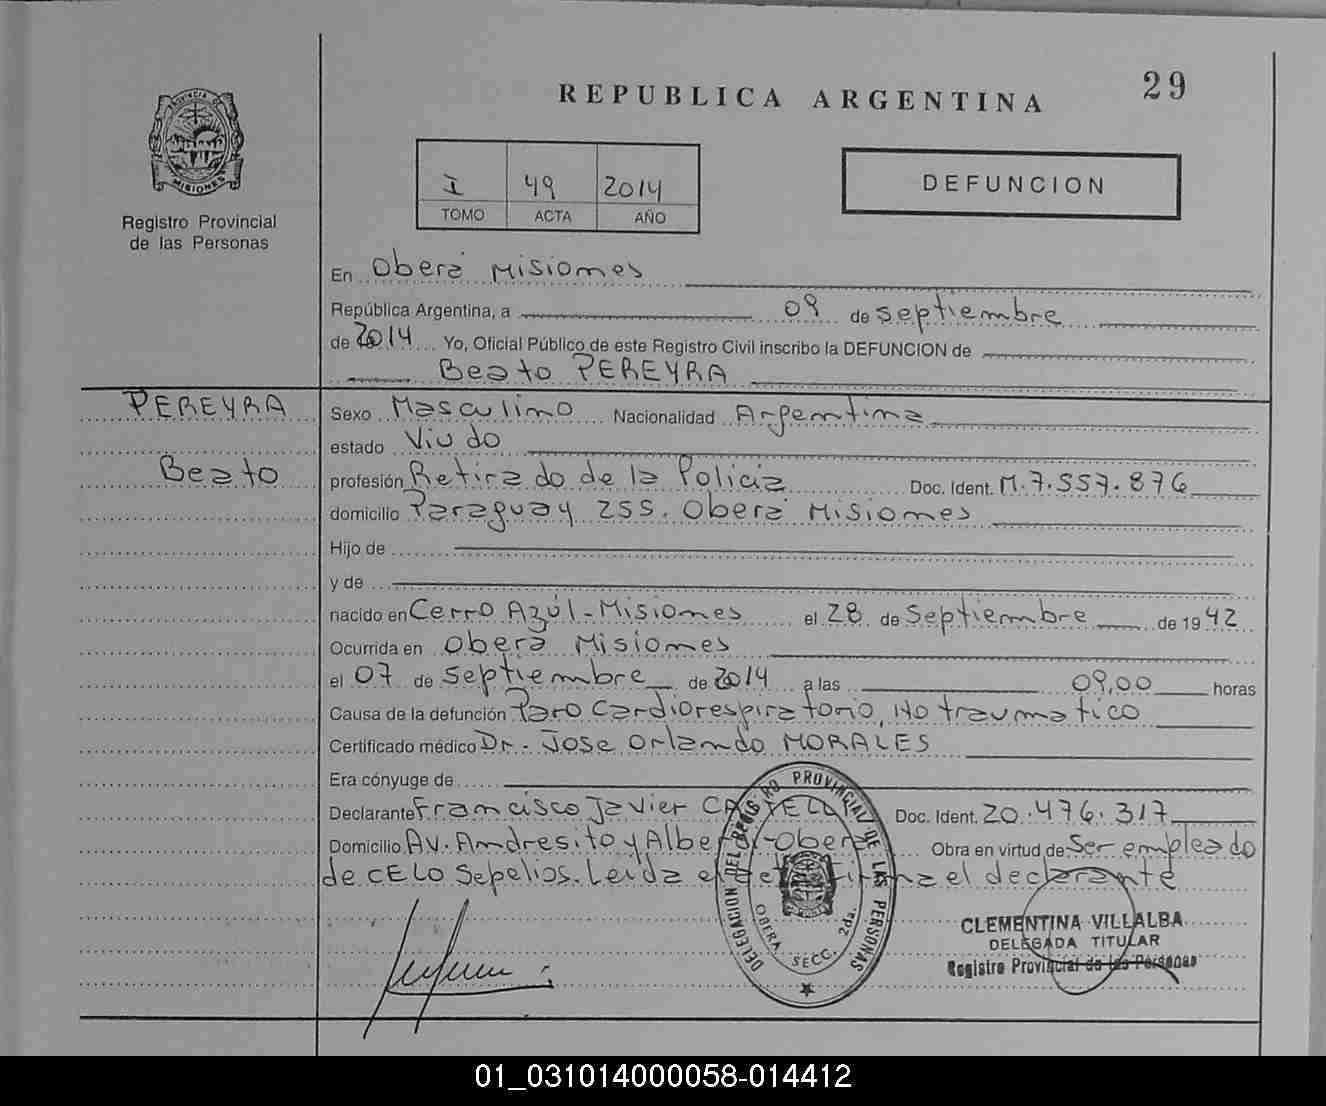 29
REPUBLICA ARGENTINA
PROVINCIA DE
MISIONES
Registro Provincial
de las Personas
I 49 2014
TOMO ACTA AÑO
DEFUNCION
En Oberá Misiones
República Argentina, a 09 de septiembre
de 2014 Yo, Oficial Público de este Registro Civil inscribo la DEFUNCION de
Beato PEREYRA
PEREYRA
Beato
Sexo Masculino Nacionalidad Argentina
estado Viudo
profesión Retirado de la Policia Doc. Ident. M.7.557.876
domicilio Paraguay 255. Oberá Misiones
Hijo de
y de
nacido en Cerro Azúl-Misiones el 28 de Septiembre de 1942
Ocurrida en Oberá Misiones
el 07 de Septiembre de 2014 a las 09,00 horas
Causa de la defunción Paro Cardiorespiratorio, No traumatico
Certificado médico Dr. Jose Orlando MORALES
Era cónyuge de
Declarante Francisco Javier Doc. Ident. 20.476.317
Domicilio Av. Andresito y Oberá Obra en virtud de Ser empleado
de CELO Sepelios. Leída el declarante
DELEGACION DEL REGISTRO PROVINCIAL DE LAS PERSONAS
OBERA SECC. 2da.
CLEMENTINA VILLALBA
DELEGADA TITULAR
Registro Provincial de las Personas
01_031014000058-014412